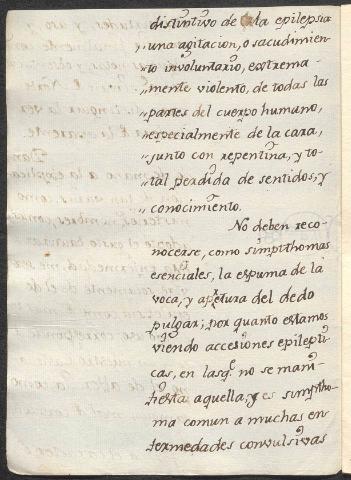 distintivo de la epilepsia
„ una agitacion, o sacudimien-
„ to involuntario, extrema-
„ mente violento, de todas las
„ partes del cuerpo humano,
„ especialmente de la cara,
„ junto con repentina, y to-
„ tal perdida de sentidos, y
„ conocimiento.
No deben reco-
nocerse, como simpthomas
esenciales, la espuma de la
voca, y apretura del dedo
pulgar; por quanto estamos
viendo accesiones epilepti-
cas, en las q.e no se mani-
fiesta aquella, y es simptho-
ma comun a muchas en-
fermedades convulsivas